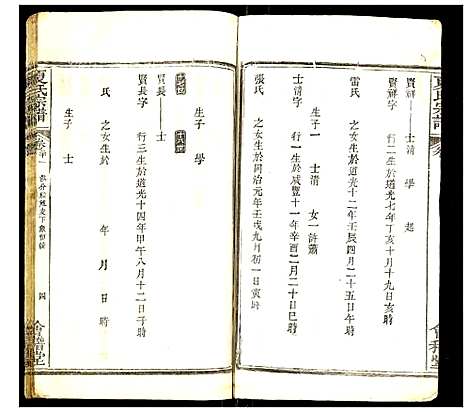 夏氏宗譜
賢祥 學起
賢祥字 行二生於道光七年丁亥十月十九日亥時
雷氏 之女生於道光十二年壬辰四月二十五日午時
生子一 士清 女一許蕭
士清字 行一生於咸豐十一年辛酉二月二十日巳時
張氏 之女生於同治元年壬戌九月初一日寅時
生子 學
賢長 士
賢長字 行三生於道光十四年甲午八月十二日子時
氏 之女生於 年 月 日 時
生子 士
夏氏宗譜